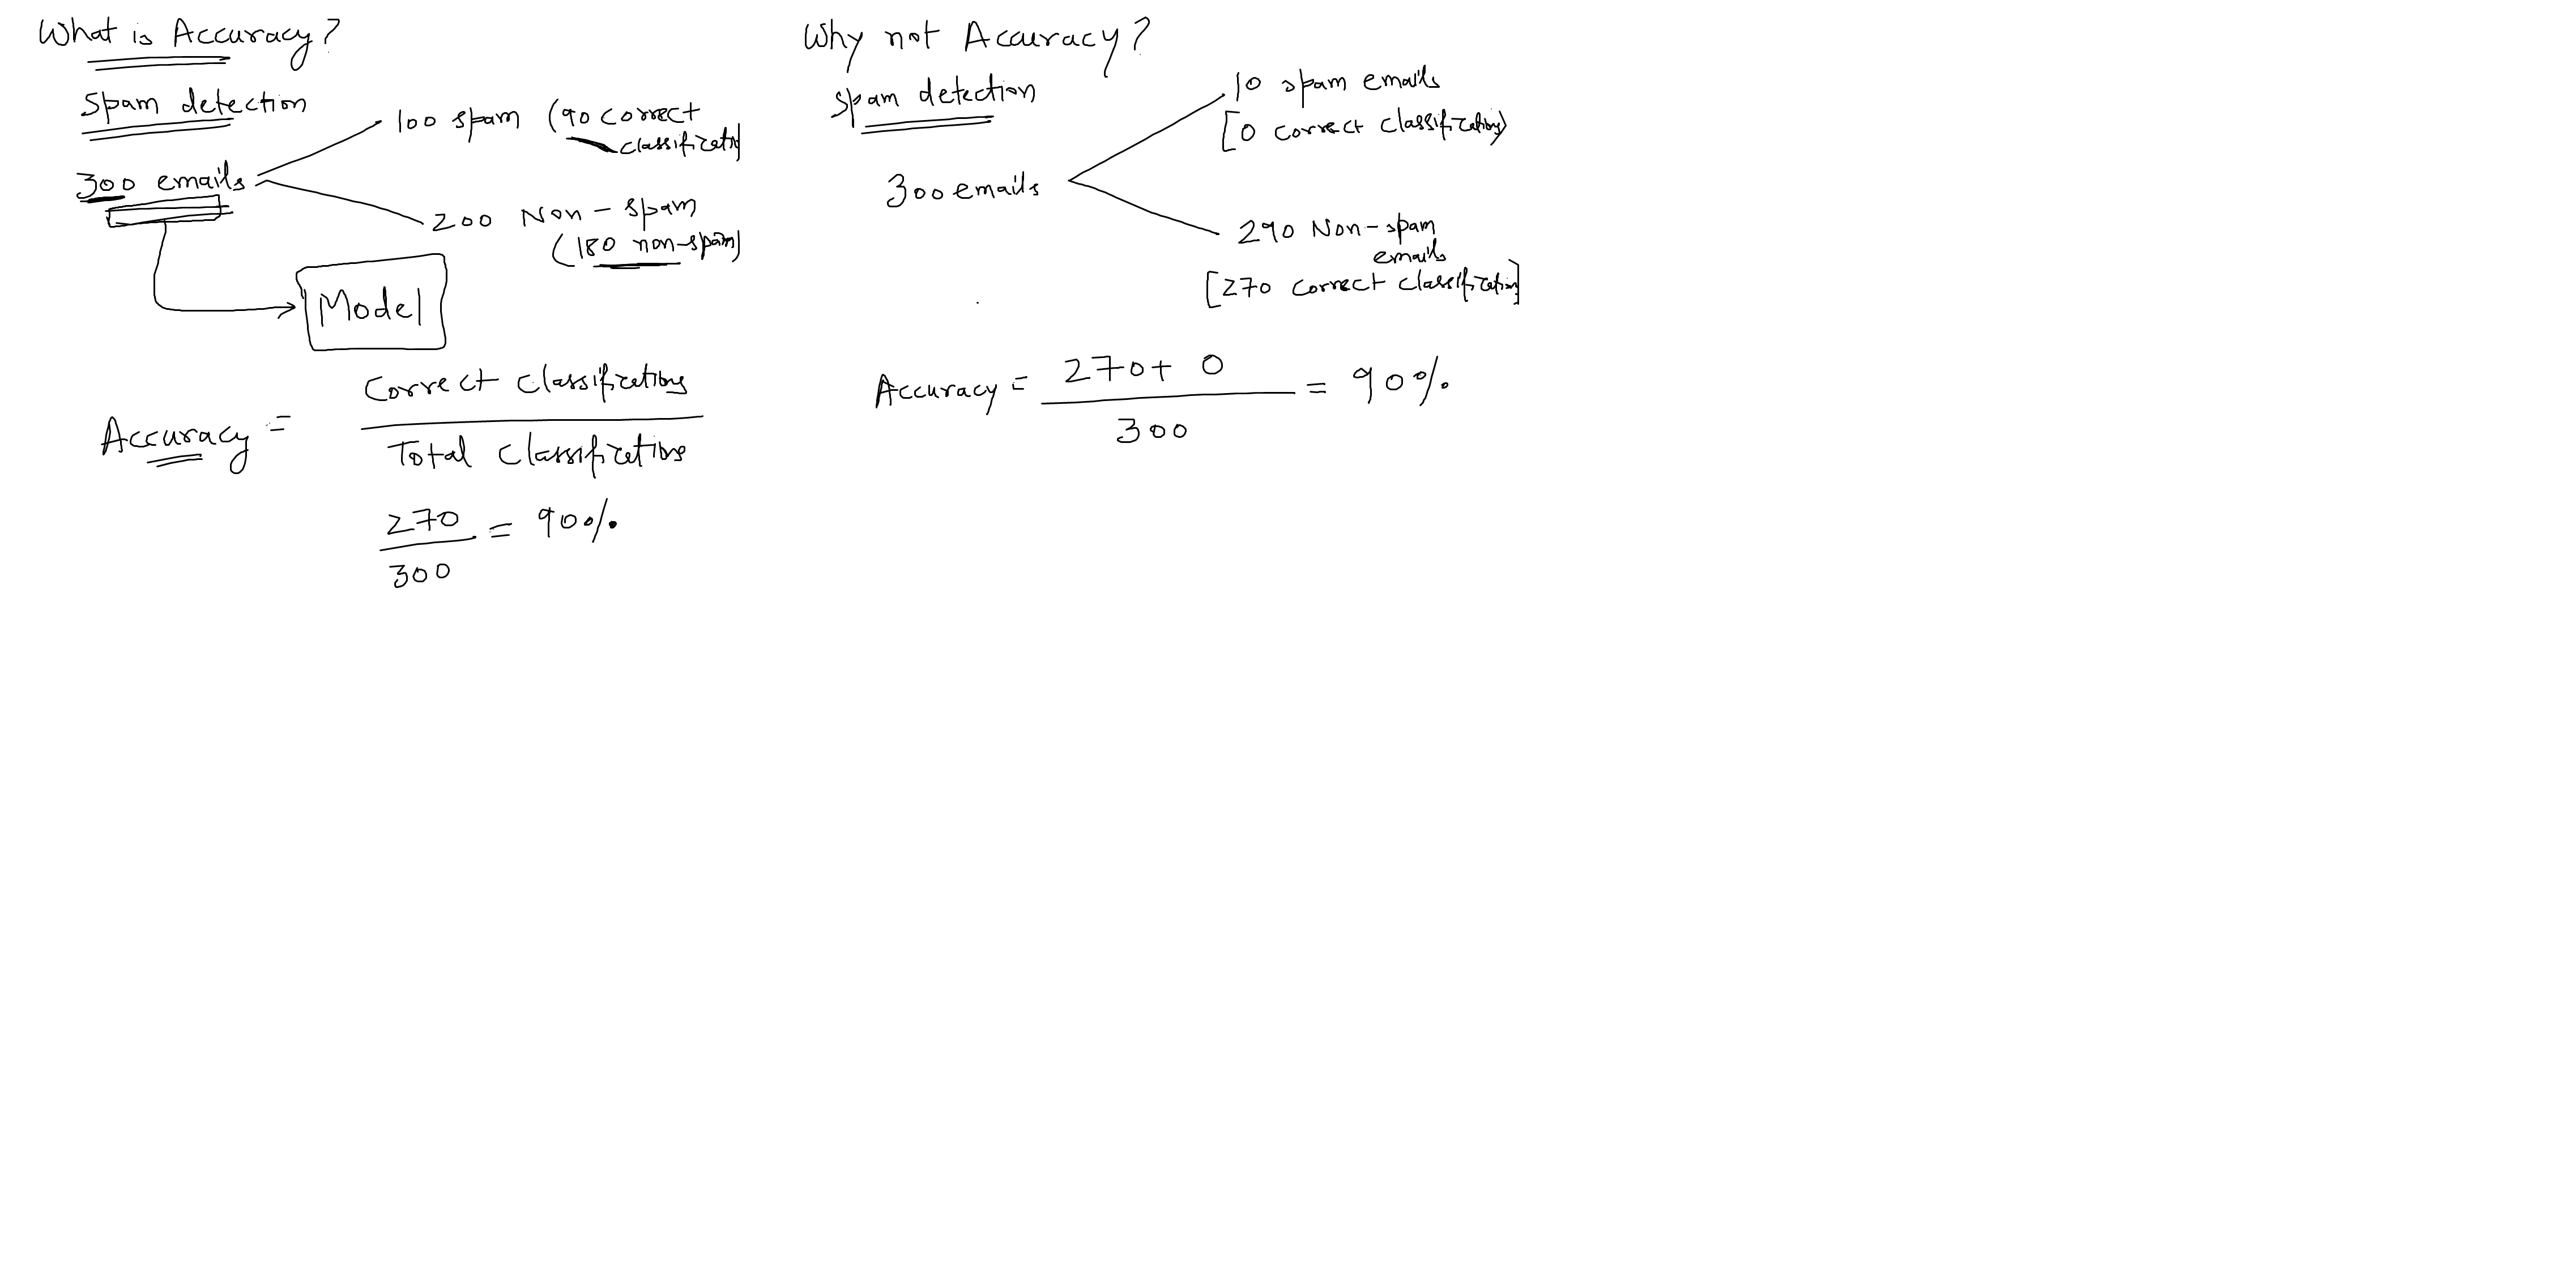 What is Accuracy?
Spam detection
100 spam (90 correct
classificatn)
300 emails
200 Non-spam
(180 non-spam)
Model
Accuracy = Correct classifications
Total classifications
270
300
= 90%
Why not Accuracy?
spam detection
10 spam emails
[0 correct classifications]
300 emails
290 Non-spam
emails
[270 correct classification]
Accuracy = 270 + 0
300
= 90%